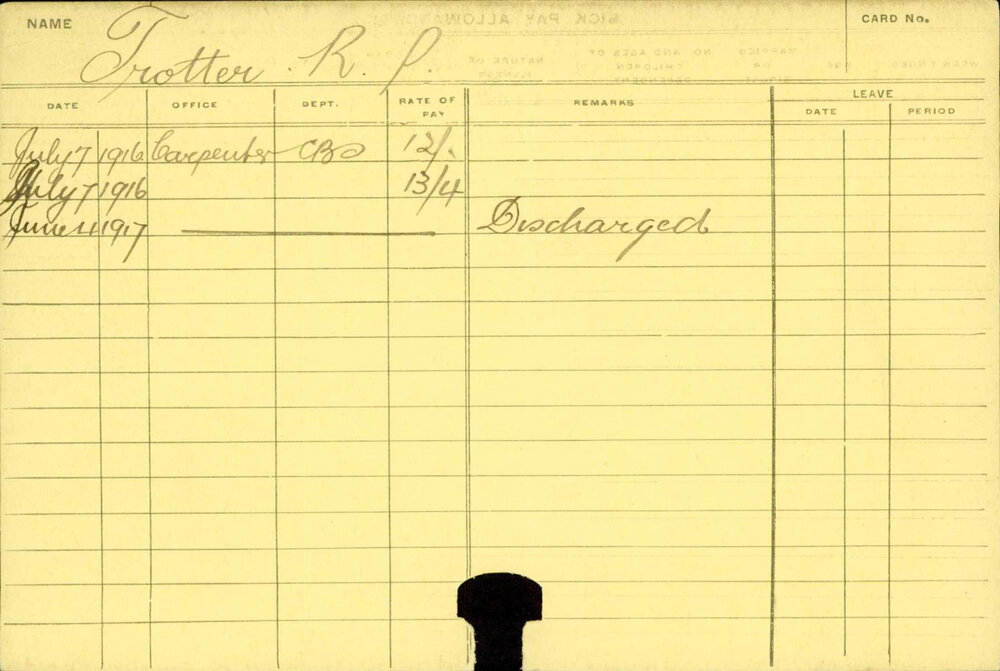 NAME Trotter R. J. CARD No.
DATE OFFICE DEPT. RATE OF PAY REMARKS LEAVE
DATE PERIOD
July 7 1916 Carpenter CBD 12/.
July 7 1916 13/4
June 1917 Discharged